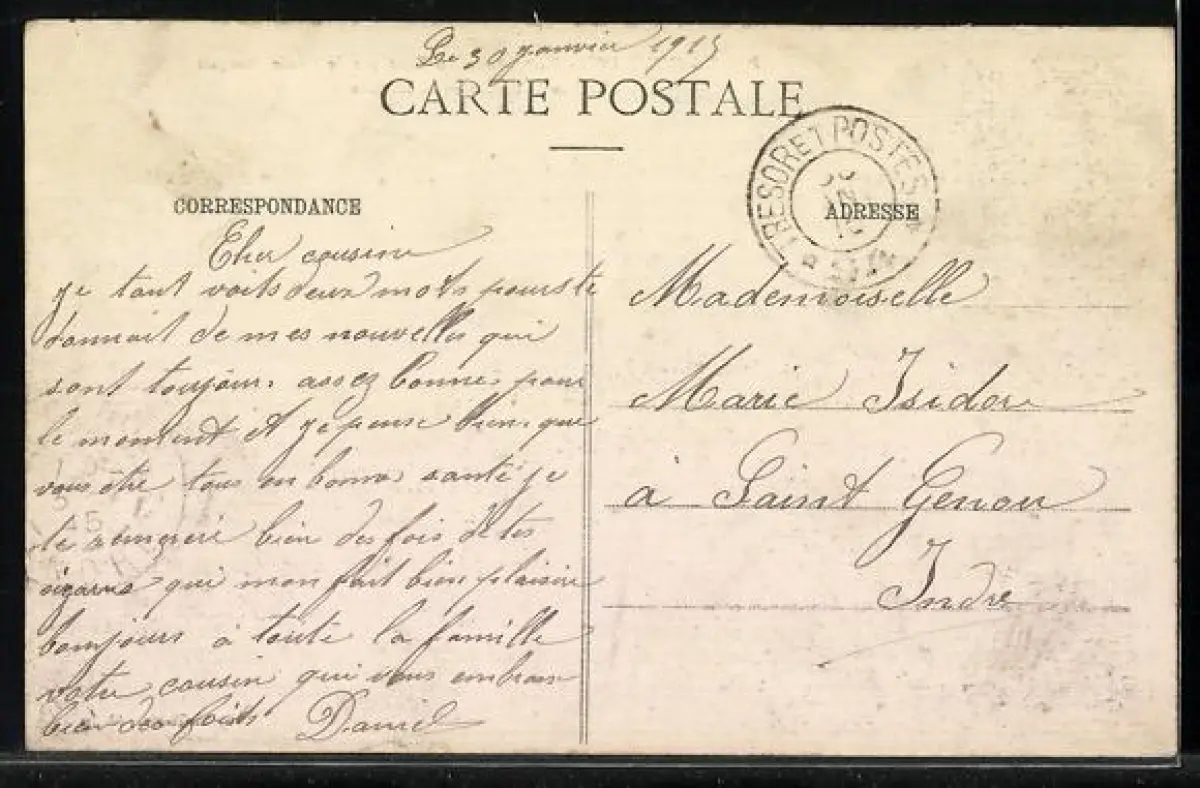 Le 30 janvier 1915
CARTE POSTALE
TRESOR ET POSTES
CORRESPONDANCE
ADRESSE
Cher cousine
je tant voits deux mots pours te
donnait de mes nouvelles qui
sont toujour assez bonnes pour
le moment et je pense bien que
vous être tous en bonne santé je
te remercie bien des fois de tes
cigares qui mon fait bien plaisire
bonjours a toute la famille
votre cousin qui vous embrasse
bien des foits Daniel
Mademoiselle
Marie Isidore
à Saint Genou
Indre